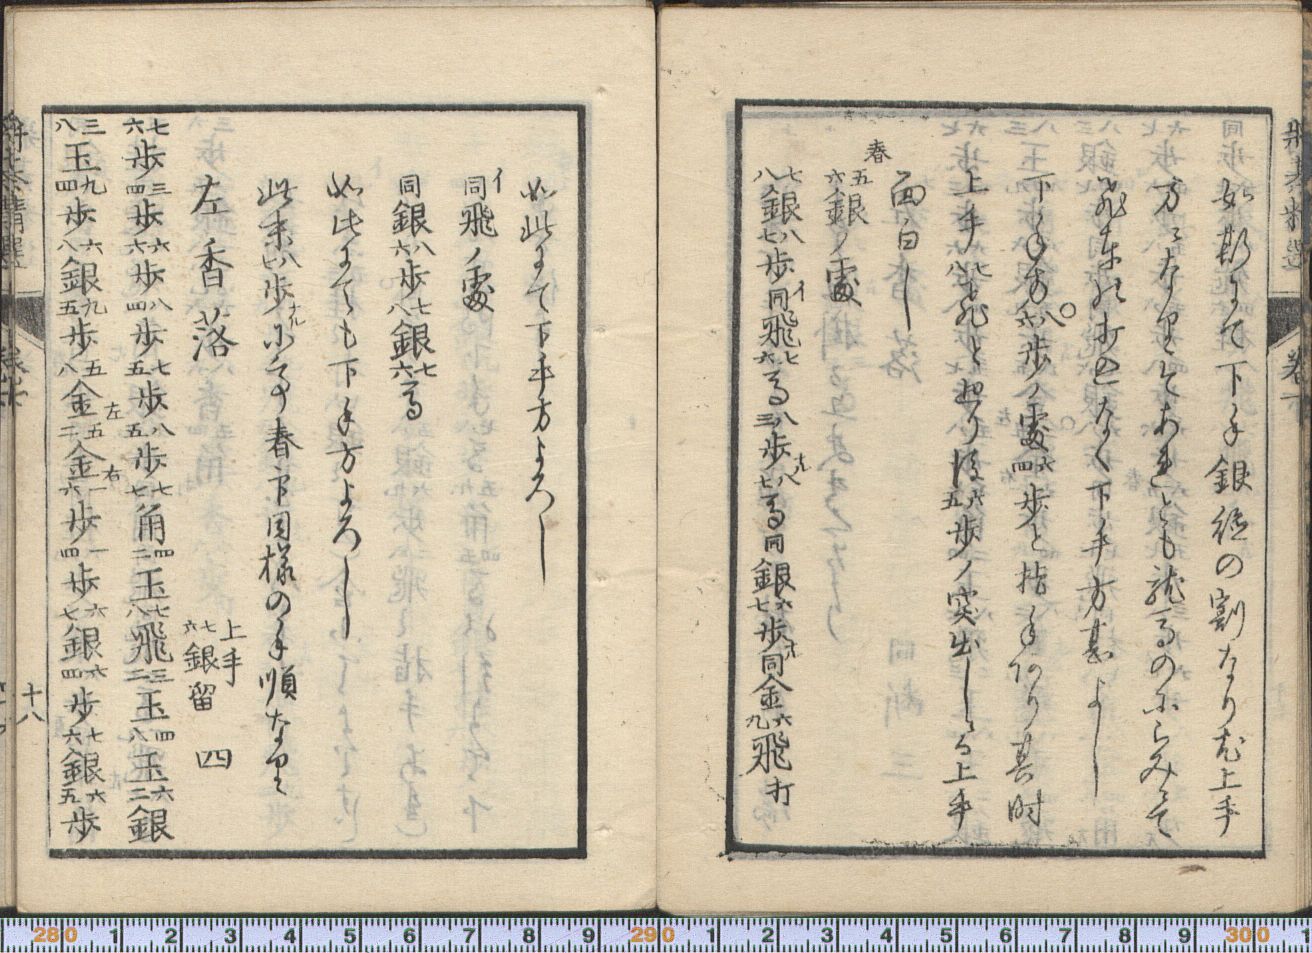 如斯にて下手銀徳の割なり尤上手
方になりてあれとも龍馬のにらみにて
飛車打込なく下手方甚よし
下手方八六歩ノ處六四歩と指手アリ其時
上手七八飛と廻り後六五歩ノ突出しある上手
面白し
春 五六銀ノ處
七八銀八七歩イ同飛七六馬八三歩八七馬同銀六七歩同金六九飛打
如此にて下手方よろし
イ
同飛ノ處
同銀八六歩七八銀七六馬
如此にても下手方よろしし
此末八七歩になる春ト同様の手順なり
左香落
上手
七六銀留 四
七六歩三四歩六六歩八四歩七五歩八五歩七七角四二玉七八飛三二玉四八玉六二銀
三八玉九四歩六八銀九五歩五八金左五二金右一六歩一四歩六七銀六四歩七六銀六五歩
十八